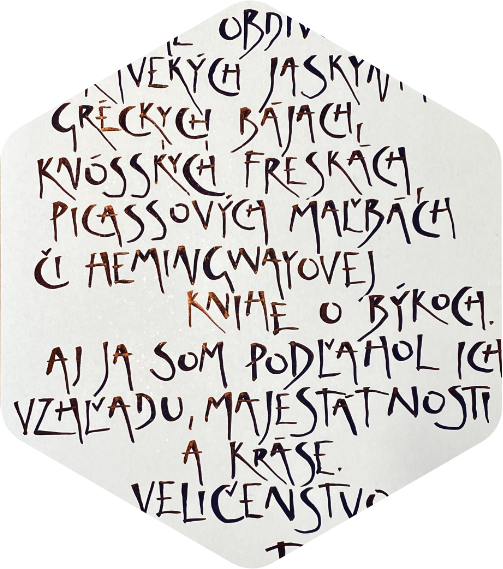 GRÉCKYCH BÁJACH,
KNÓSSKÝCH FRESKÁCH,
PICASSOVÝCH MAĽBÁCH
ČI HEMINGWAYOVEJ
KNIHE O BÝKOCH.
AJ JA SOM PODĽAHOL ICH
VZHĽADU, MAJESTÁTNOSTI
A KRÁSE.
VELIČENSTVO